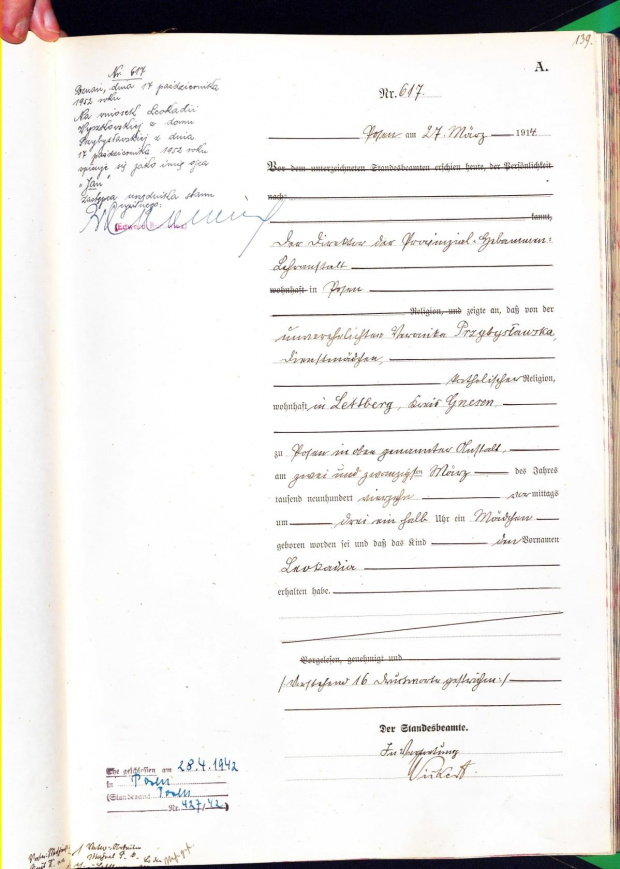 139.
A.
Nr. 617
Poznań, dnia 17 października
1952 roku
Na wniosek Leokadii
z domu
Przybysławskiej z dnia
17 października 1952 roku
wpisuje się jako imię ojca
"Jan"
Zastępca urzędnika stanu
cywilnego:
Nr. 617.
Posen am 27. März 1914
Vor dem unterzeichneten Standesbeamten erschien heute, der Persönlichkeit
nach
kannt,
Der Direktor der Provinzial-Hebammen-
Lehranstalt
wohnhaft in Posen
Religion, und zeigte an, daß von der
unverehelichten Veronika Przybysławska,
Dienstmädchen,
katholischer Religion,
wohnhaft in Lettberg, Kreis Gnesen
zu Posen in oben genannter Anstalt
am zwei und zwanzigsten März des Jahres
tausend neunhundert vierzehn vormittags
um drei ein halb Uhr ein Mädchen
geboren worden sei und daß das Kind den Vornamen
Leokadia
erhalten habe.
Vorgelesen, genehmigt und
/:Vorstehend 16 Druckworte gestrichen:/
Der Standesbeamte.
In Vertretung
Ehe geschlossen am 28.4.1942
in Posen
(Standesamt Posen
Nr. 427/42)